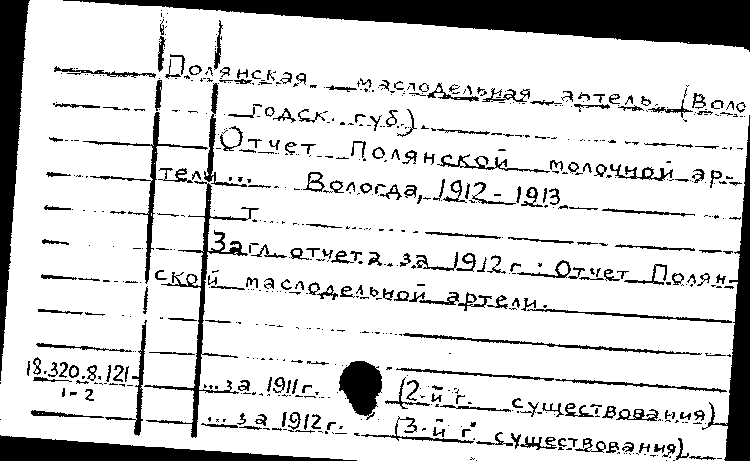 Полянская маслодельная артель (Воло
годск. губ.).
Отчет Полянской молочной ар-
тели... Вологда, 1912-1913
т
Загл. отчета за 1912 г.: Отчет Полян-
ской маслодельной артели.
18.320.8.121-
1-2
...за 1911 г. (2-й г. существования)
...за 1912 г. (3-й г. существования).